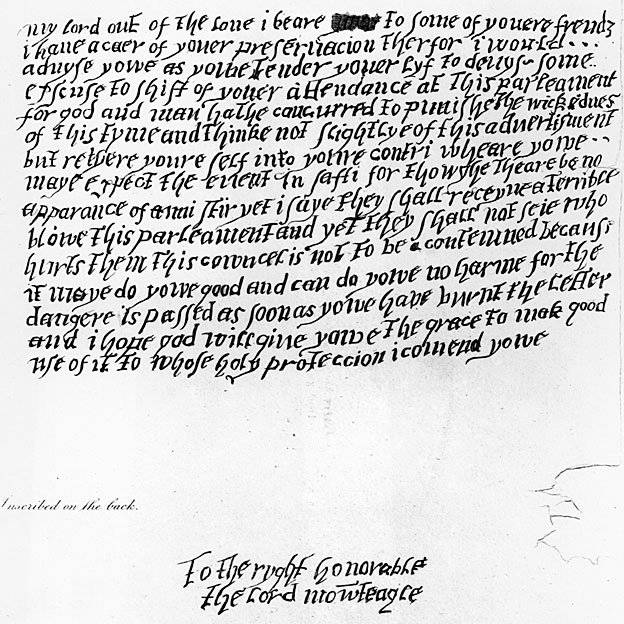 my lord out of the loue i beare to some of youere frendz
i haue a caer of youer preseruacion therfor i would
aduyse yowe as yowe tender youer lyf to deuys some
exscuse to shift of youer attendance at this parleament
for god and man hathe concurred to punishe the wickednes
of this tyme and thinke not slightlye of this aduertisment
but retyere youre self into youre contri wheare yowe
maye expect the euent in safti for thowghe theare be no
apparance of anni stir yet i saye they shall receyue a terrible
blowe this parleament and yet they shall not seie who
hurts them this cowncel is not to be contemned becaus
it maye do yowe good and can do yowe no harme for the
dangere is passed as soon as yowe have burnt the letter
and i hope god will give yowe the grace to mak good
use of it to whose holy proteccion i comend yowe
Inscribed on the back.
To the ryght honorable
the lord mowteagle